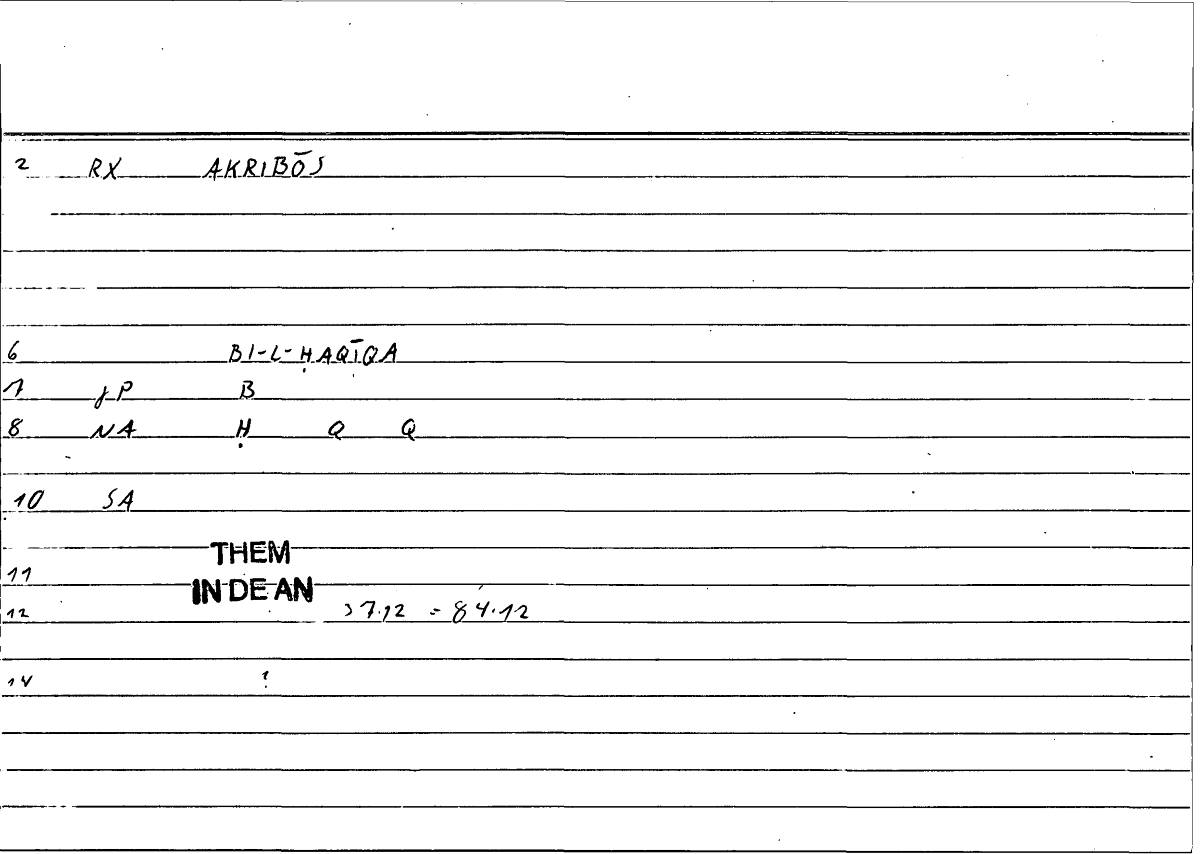 2 RX AKRIBŌS
6 BI-L-ḤAQĪQA
7 γP B
8 NA Ḥ Q Q
10 SA
THEM
11
IN DE AN
12 37.12 = 84.12
14 ?